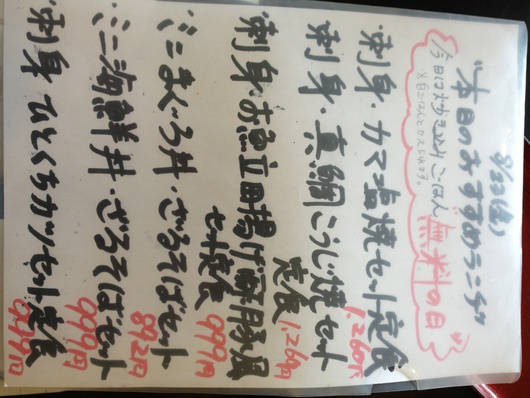 8/23(金)
本日のおすすめランチ
今日はたき込みごはん無料の日
※白ごはんとかえられます。
・刺身・カマ塩焼セット定食 1,260円
刺身・真鯛こうじ焼セット定食 1,260円
刺身・お魚立田揚げ南蛮風セット定食 999円
ミニまぐろ丼・ざるそばセット 892円
ミニ海鮮丼・ざるそばセット 999円
刺身 ひとくちカツセット定食 999円